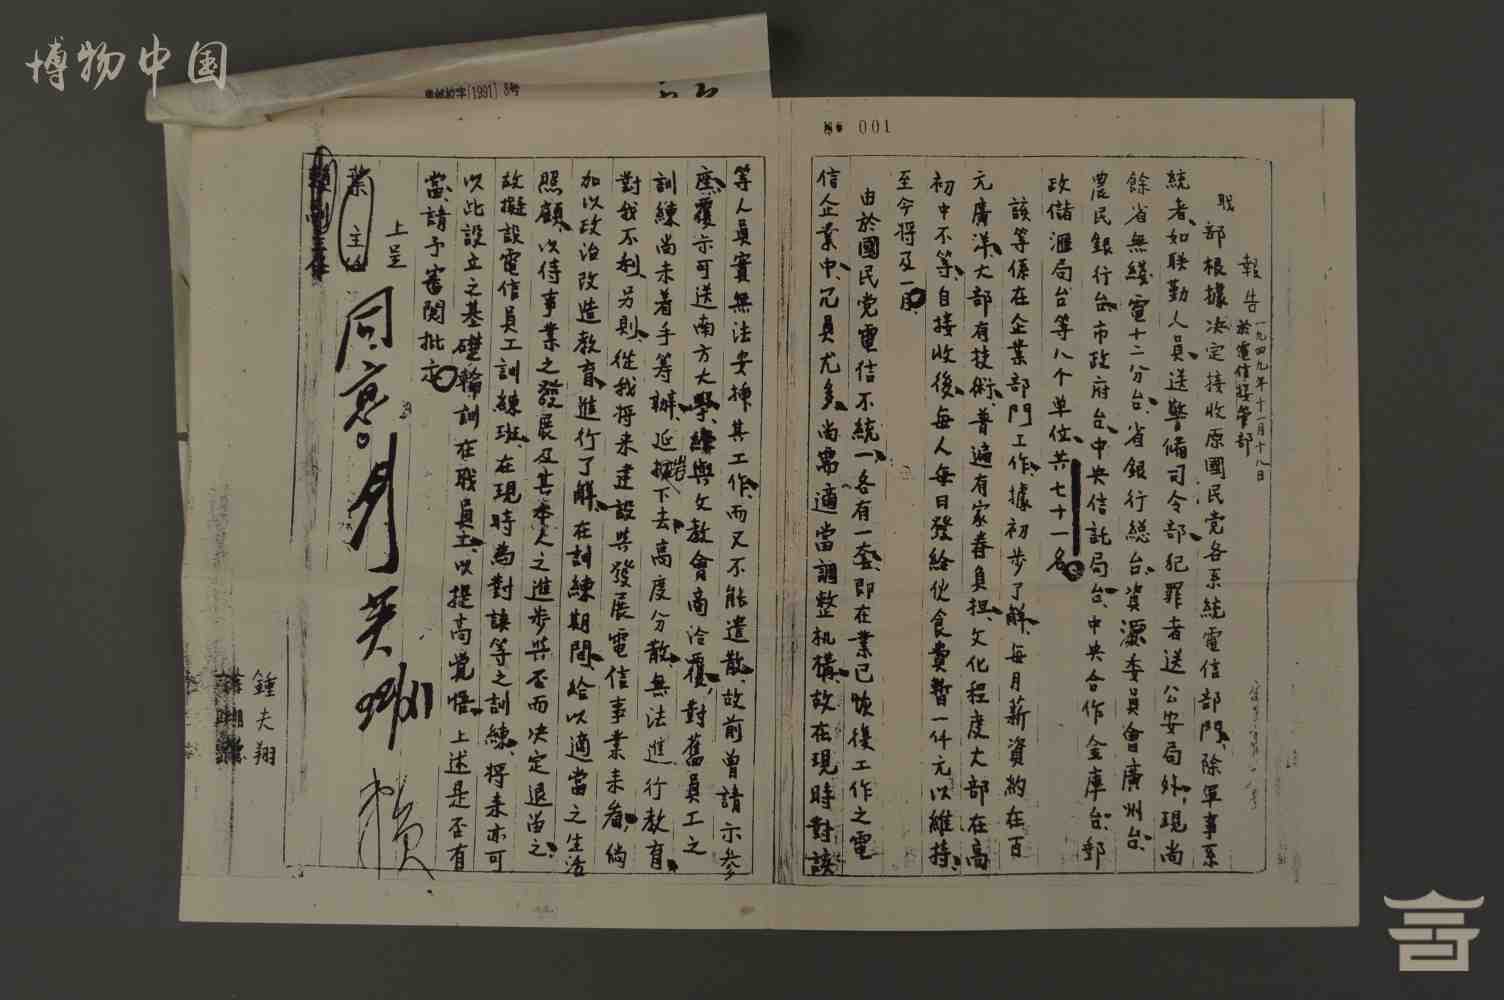 博物中国
字[1991]8号
№ 001
報告 一九四九年十一月十八日
於電信接管部
戢
部根據决定接收原國民党各系統電信部門、除軍事系
統者、如联勤人員、送警备司令部、犯罪者送公安局外、現尚
餘省無綫電十二分台、省銀行総台、資源委員會廣州台、
農民銀行台、市政府台、中央信託局台、中央合作金庫台、郵
政儲滙局台等八个单位、共七十一名。
該等係在企業部門工作、據初步了解、每月薪資約在百
元廣洋、大部有技術、普遍有家眷負担、文化程度大部在高
初中不等、自接收後、每人每日發給伙食費暫一仟元以維持、
至今将及一月。
由於國民党電信不統一、各有一套、即在業已恢復工作之電
信企業中、冗員尤多、尚需適當調整机構、故在現時對該
等人員實無法安揷其工作、而又不能遣散、故前曾請示参
座、覆示可送南方大學、續與文教會商洽、覆、對舊員工之
訓練尚未着手筹辦、延捱下去、高度分散、無法進行教育、
對我不利、另則、從我将来建設共發展電信事業来看、倘
加以政治改造教育、進行了解、在訓練期間、給以適當之生活
照顧、以待事業之發展及其本人之進步共否而决定退留之、
故擬設電信員工訓練班、在現時為對該等之訓練、将来亦可
以此設立之基礎輪訓在職員工、以提高覺悟、上述是否有
當、請予審閱批示。
上呈
葉主任
賴副主任
同意。
賴
鍾夫翔